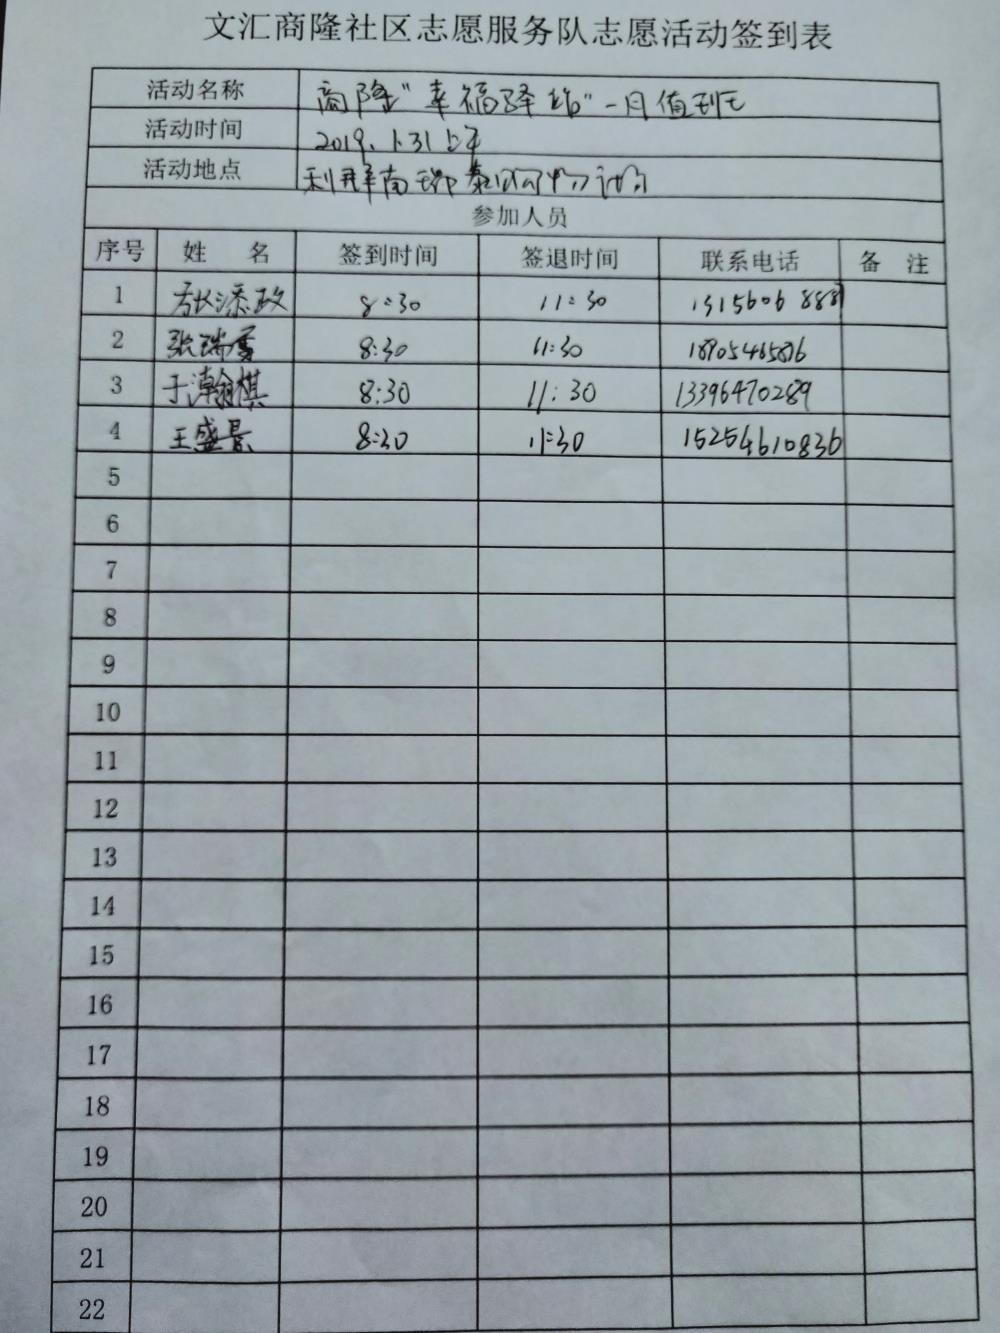 文汇商隆社区志愿服务队志愿活动签到表
活动名称 商隆"幸福驿站"一月值班
活动时间 2019.1.31上午
活动地点 利群南
参加人员
序号 姓 名 签到时间 签退时间 联系电话 备 注
1 添政 8:30 11:30 1315606 888
2 张瑞雪 8:30 11:30
3 于瀚棋 8:30 11:30 13396470289
4 王盛景 8:30 11:30 15254610836
5
6
7
8
9
10
11
12
13
14
15
16
17
18
19
20
21
22